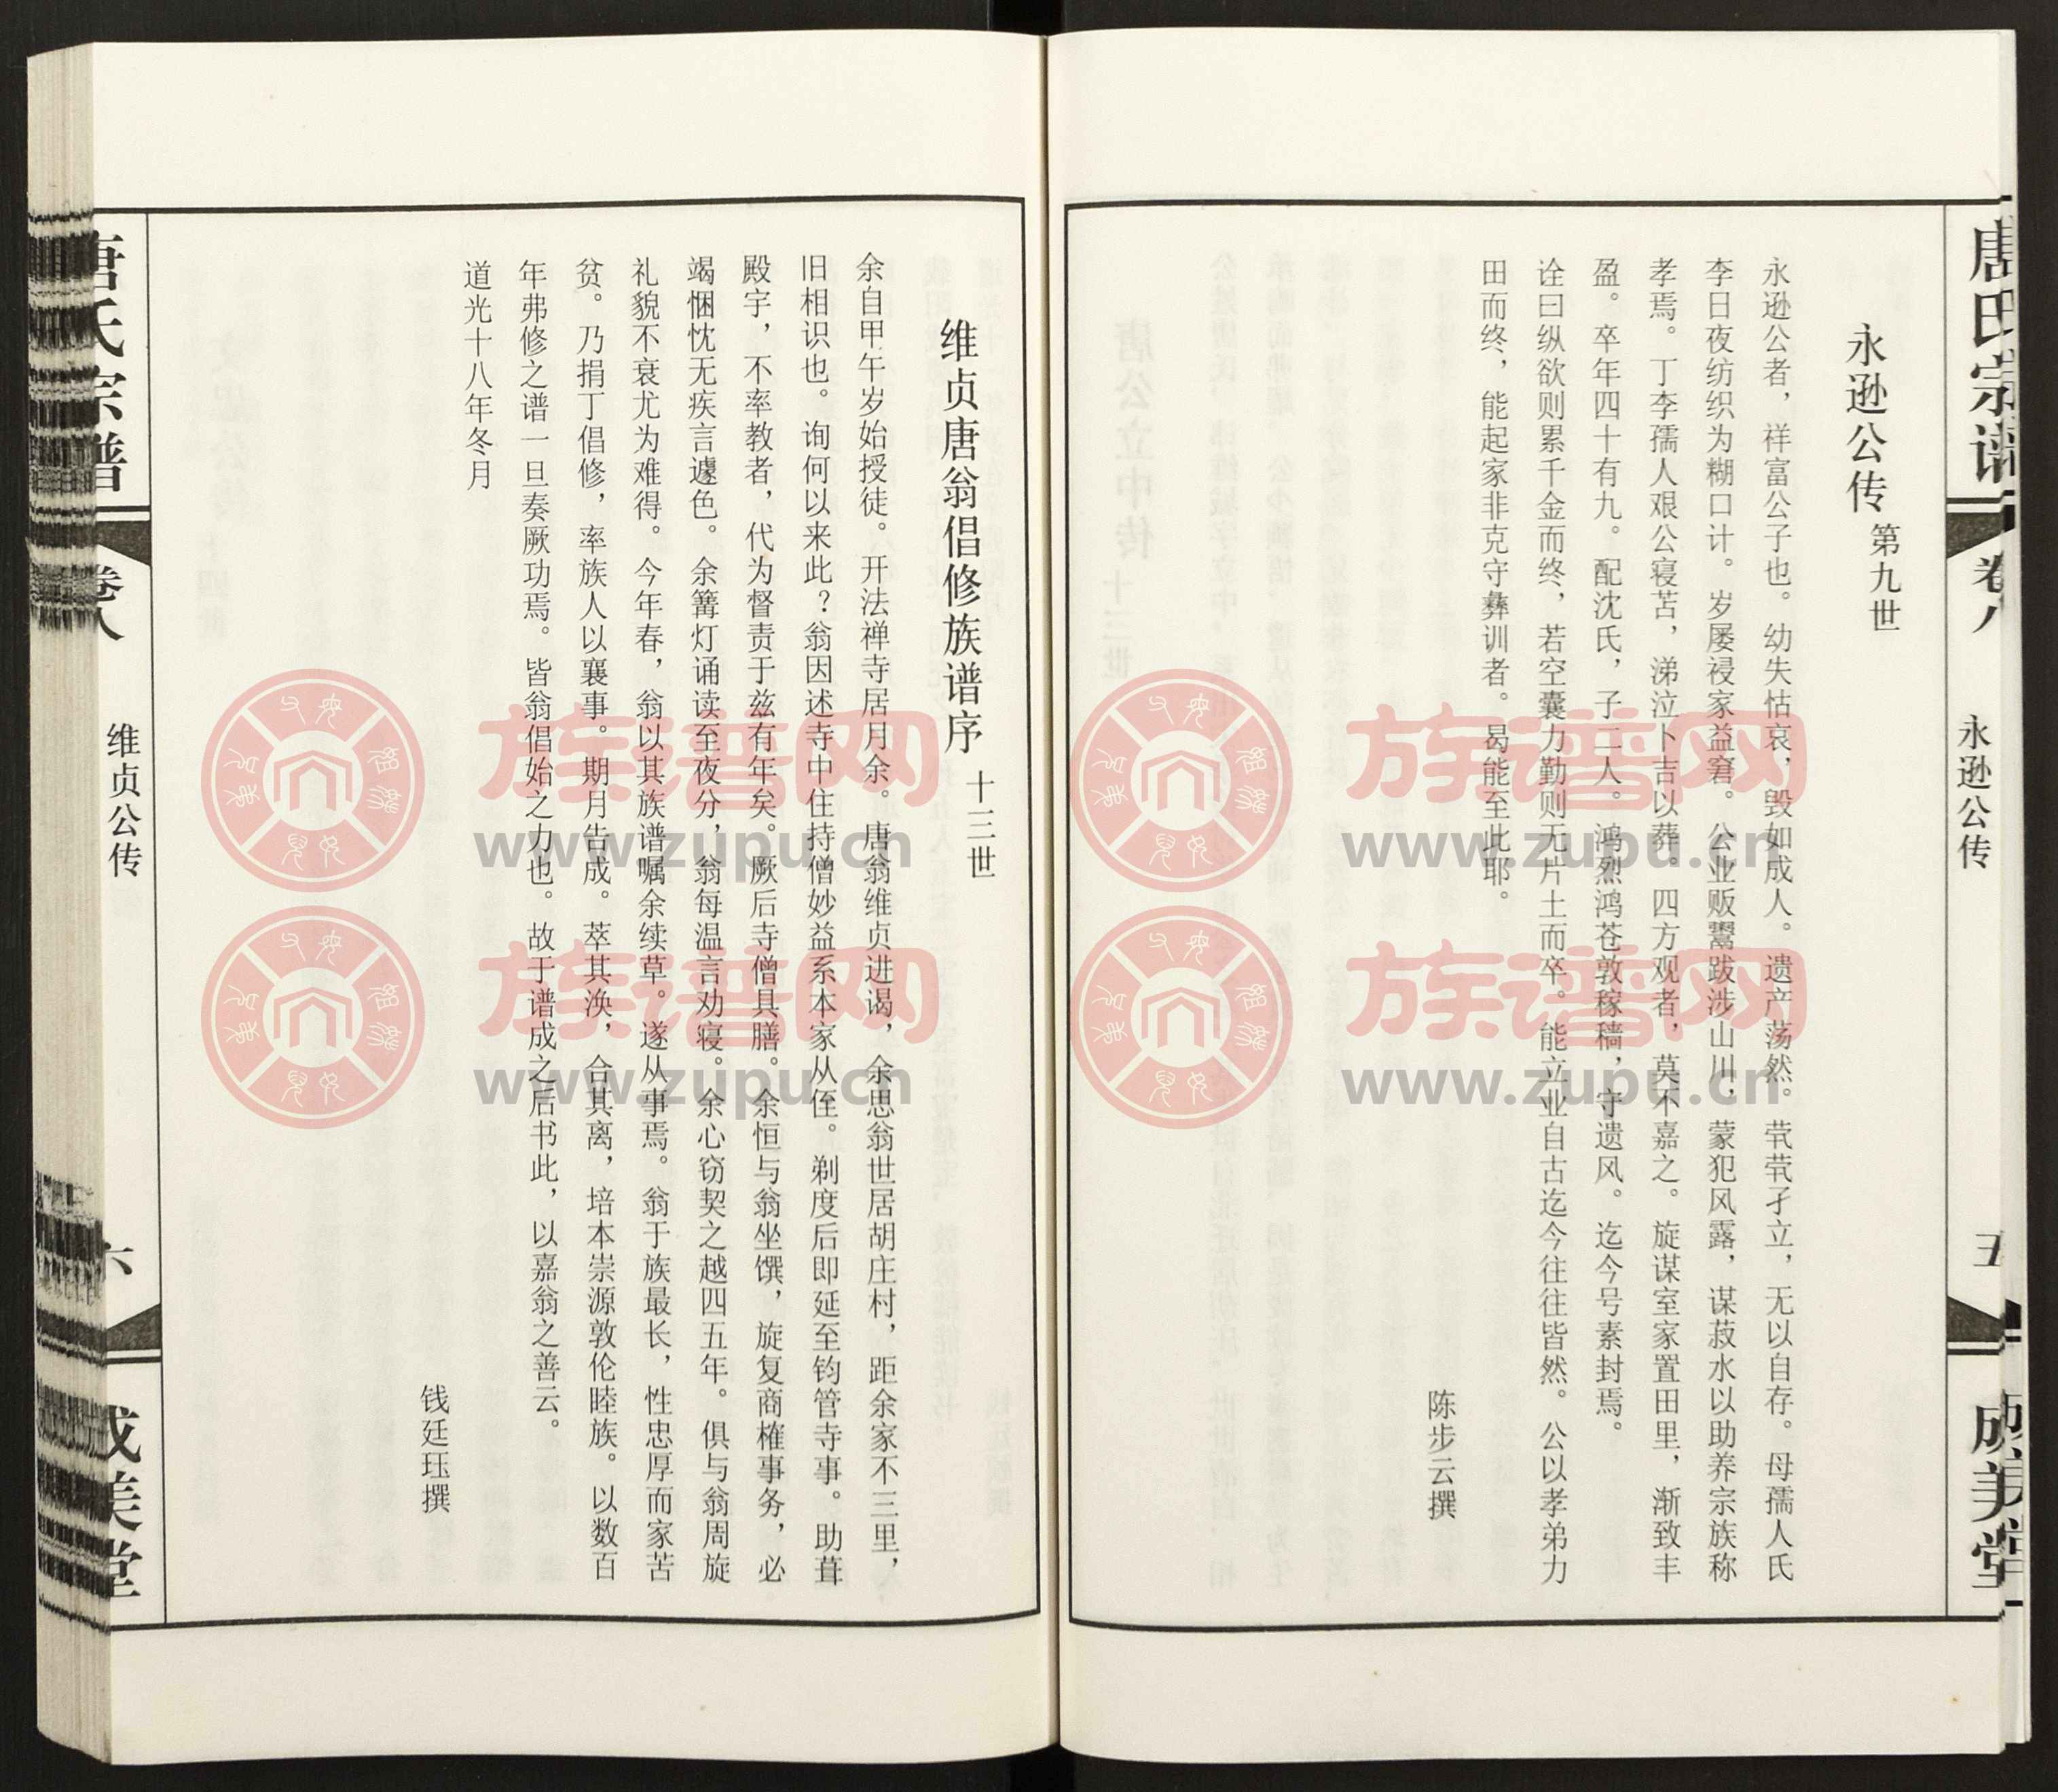 唐氏宗谱
卷八
永逊公传
五
成美堂
永逊公传 第九世
永逊公者，祥富公子也。幼失怙哀，毁如成人。遗产荡然。茕茕孑立，无以自存。母孺人氏
李日夜纺织为糊口计。岁屡祲家益窘。公业贩鬻跋涉山川，蒙犯风露，谋菽水以助养宗族称
孝焉。丁李孺人艰公寝苫，涕泣卜吉以葬。四方观者，莫不嘉之。旋谋室家置田里，渐致丰
盈。卒年四十有九。配沈氏，子二人。鸿烈鸿苍敦稼穑，守遗风。迄今号素封焉。
诠曰纵欲则累千金而终，若空囊力勤则无片土而卒。能立业自古迄今往往皆然。公以孝弟力
田而终，能起家非克守彝训者。曷能至此耶。
陈步云撰
维贞唐翁倡修族谱序 十三世
余自甲午岁始授徒。开法禅寺居月余。唐翁维贞进谒，余思翁世居胡庄村，距余家不三里，
旧相识也。询何以来此？翁因述寺中住持僧妙益系本家从侄。剃度后即延至钧管寺事。助葺
殿宇，不率教者，代为督责于兹有年矣。厥后寺僧具膳。余恒与翁坐馔，旋复商榷事务，必
竭悃忱无疾言遽色。余篝灯诵读至夜分，翁每温言劝寝。余心窃契之越四五年。俱与翁周旋
礼貌不衰尤为难得。今年春，翁以其族谱嘱余续草。遂从事焉。翁于族最长，性忠厚而家苦
贫。乃捐丁倡修，率族人以襄事。期月告成。萃其涣，合其离，培本崇源敦伦睦族。以数百
年弗修之谱一旦奏厥功焉。皆翁倡始之力也。故于谱成之后书此，以嘉翁之善云。
道光十八年冬月
钱廷珏撰
唐氏宗谱
卷八
维贞公传
六
成美堂
族谱网
www.zupu.cn
族谱网
www.zupu.cn
族谱网
www.zupu.cn
族谱网
www.zupu.cn